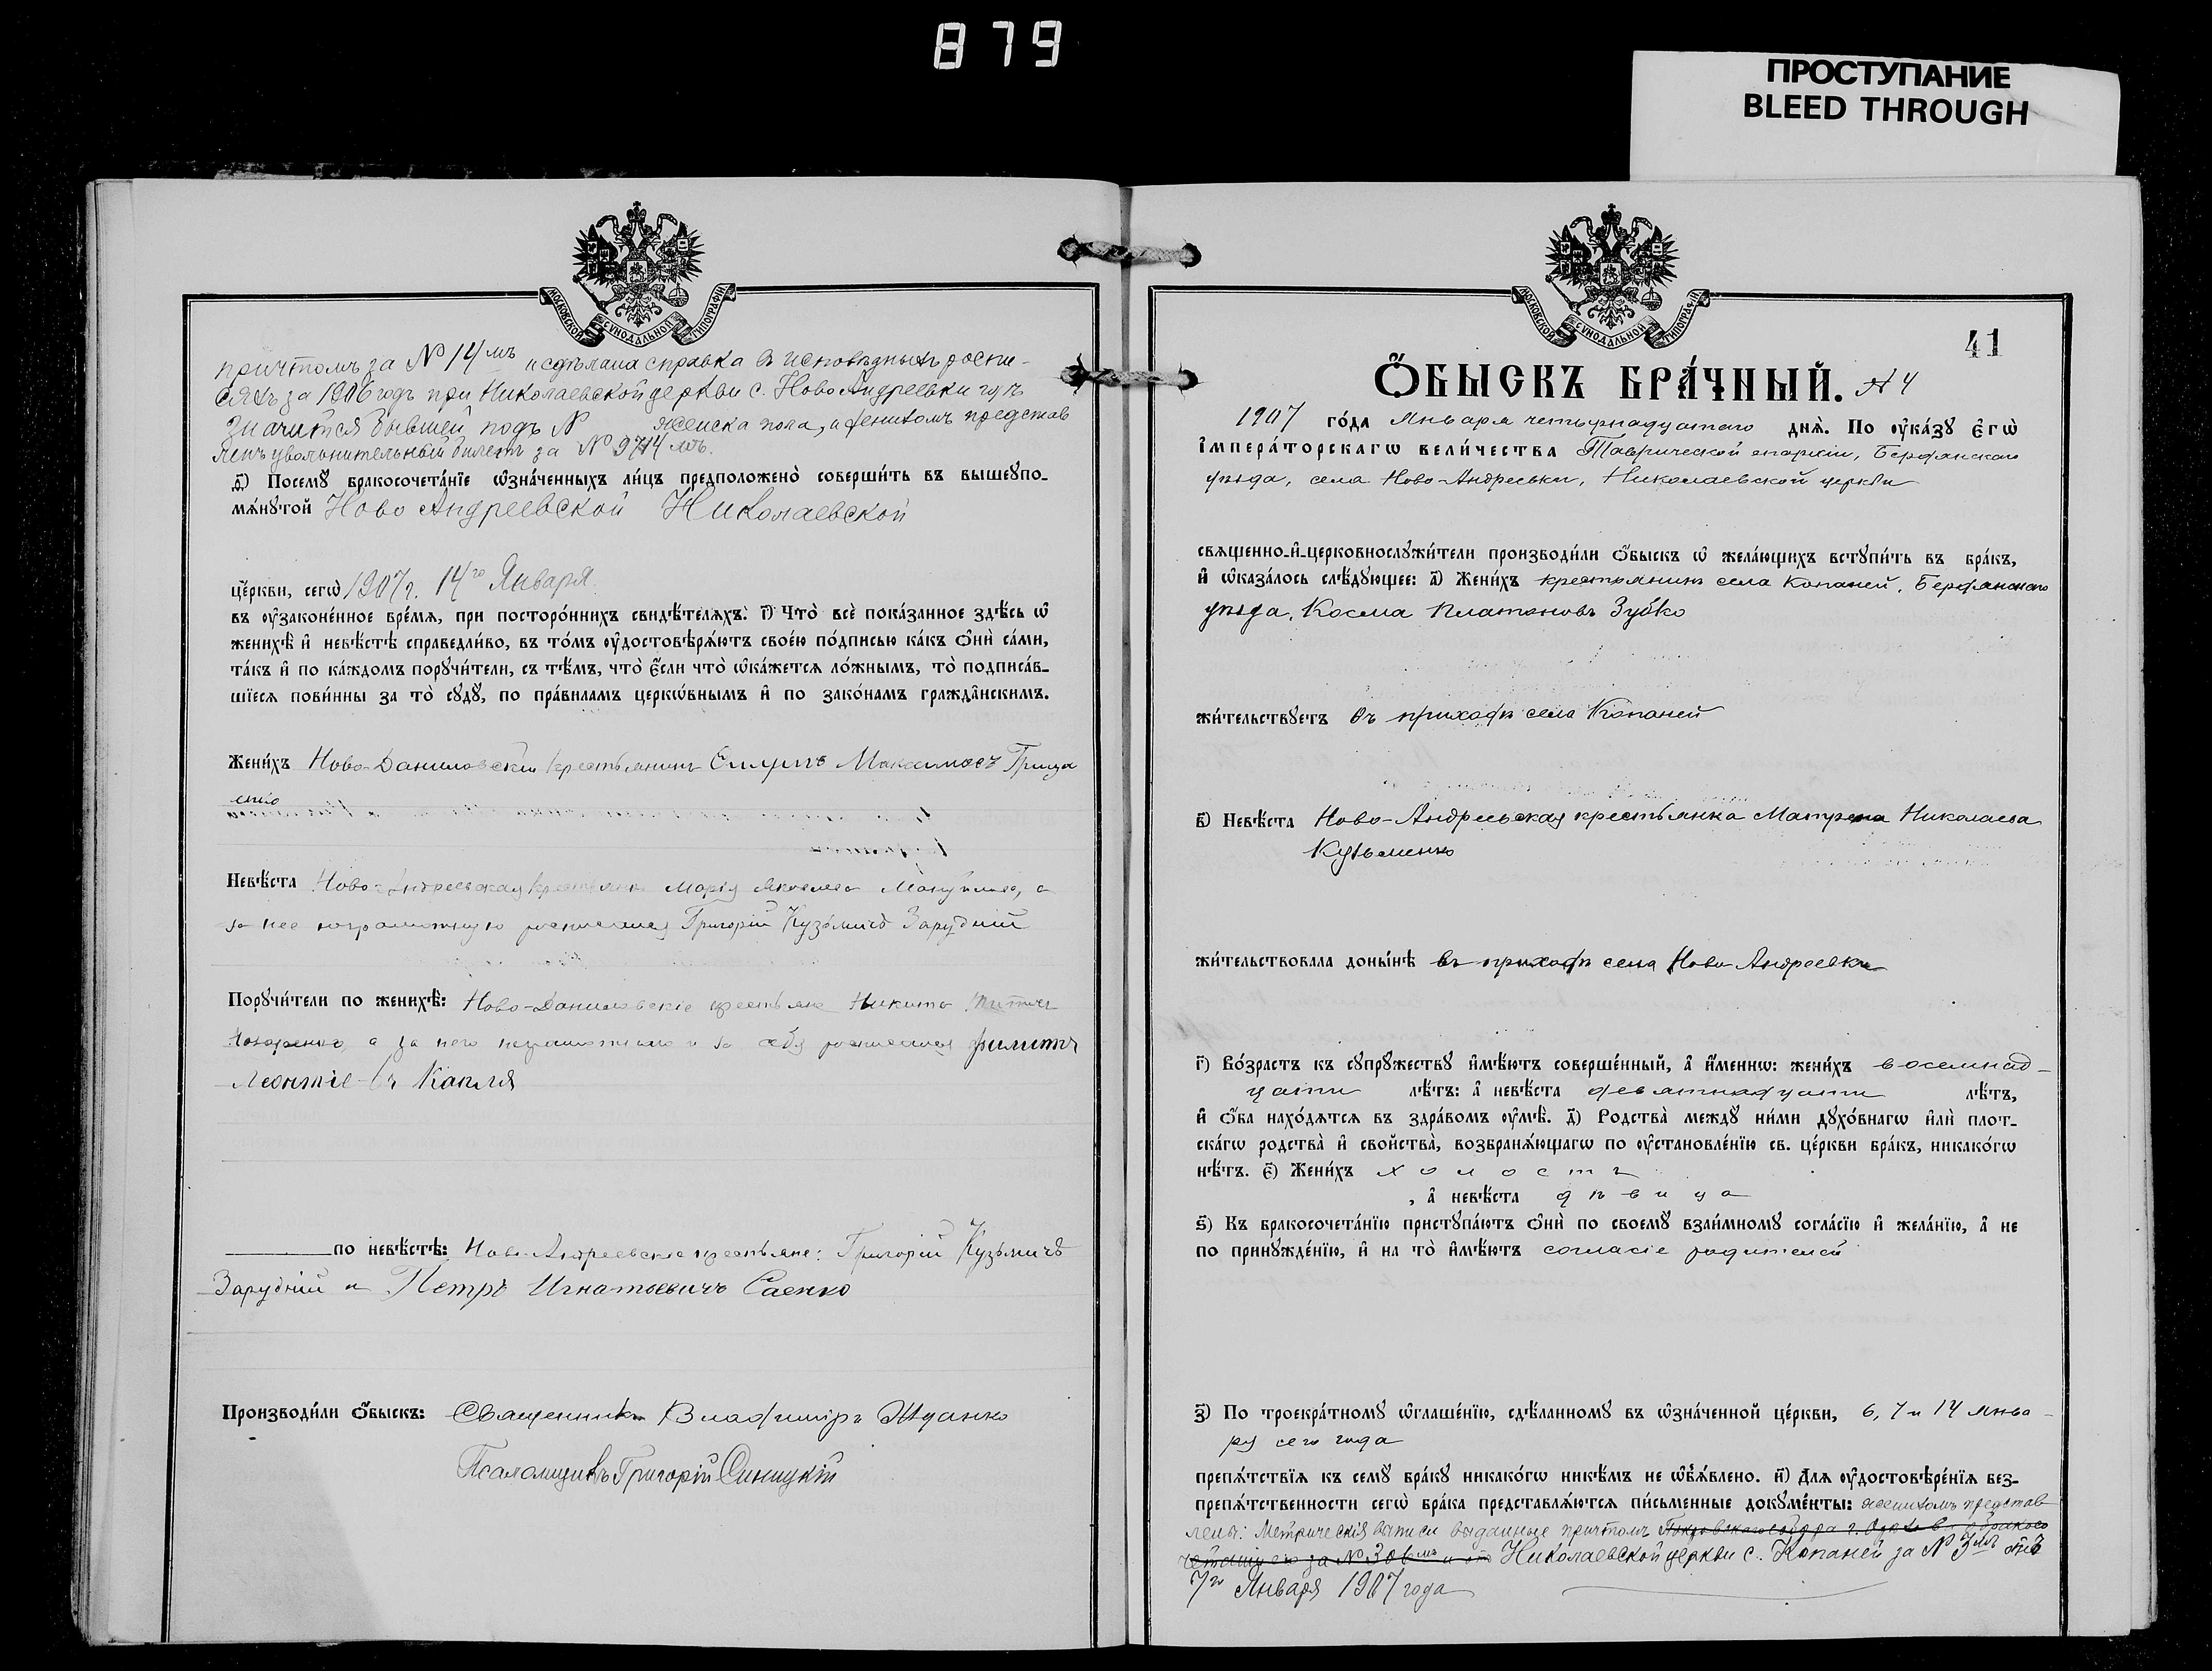 879
ПРОСТУПАНИЕ
BLEED THROUGH
МОСКОВСКОЙ СѴНОДАЛЬНОЙ ТИПОГРАФІИ
причтомъ за № 14мъ и сдѣлана справка в исповѣдныхъ роспи-
сяхъ за 1906 годъ при Николаевской церкви с. Ново Андреевки гдѣ
значится бывшей подъ № женска пола, а женихомъ представ
ленъ увольнительный билетъ за № 9714 мъ.
д҃) Посемꙋ̀ бракосочета́нїе ѡ҆зна́ченныхъ ли́цъ предположено̀ соверши́ть въ вышеупо-
мѧ́нꙋтой Ново Андреевской Николаевской
це́ркви, сегѡ̀ 1907 г. 14го Января
въ ᲂу҆зако́ненное вре́мѧ, при посторо́ннихъ свидѣ́телѧхъ. і҃) Что̀ всѐ пока́занное здѣ́сь ѡ҆
женихѣ̀ и҆ невѣ́стѣ справедли́во, въ то́мъ ᲂу҆достовѣрѧ́ютъ свое́ю по́дписью ка́къ ѻ҆нѝ са́ми,
та́къ и҆ по ка́ждомъ порꙋчи́тели, съ тѣ́мъ, что̀ є҆́сли что̀ ѡ҆ка́жетсѧ ло́жнымъ, то̀ подписа́в-
шїесѧ пови́нны за то̀ сꙋдꙋ̀, по пра́виламъ церко́внымъ и҆ по зако́намъ гражда́нскимъ.
Жени́хъ Ново-Даниловскій крестьянинъ Максимовъ Грица
енко
Невѣ́ста Ново-Андреевская крестьянка Марія а
за нее неграмотную росписался Григорій Кузьмичъ Зарудній
Порꙋчи́тели по женихѣ̀: Ново-Даниловскіе крестьяне Никита
а за него неграмотнаго и за себя росписался Филиппъ
Леонтіевъ Капля
по невѣ́стѣ: Ново-Андреевскіе крестьяне: Григорій Кузьмичъ
Зарудній и Петръ Игнатьевичъ Саенко
Производи́ли ѻ҆́быскъ: Священникъ Владиміръ
Псаломщикъ Григорій Синицкій
МОСКОВСКОЙ СѴНОДАЛЬНОЙ ТИПОГРАФІИ
41
Ѻ҆́БЫСКЪ БРА́ЧНЫЙ. № 4
1907 го́да Января четырнадцатаго днѧ̀. По ᲂу҆ка́зꙋ є҆гѡ̀
і҆мпера́торскагѡ вели́чества Таврической епархіи, Бердянскаго
уѣзда, села Ново-Андреевки, Николаевской церкви
свѧщенно-и҆-церковнослꙋжи́тели производи́ли ѻ҆́быскъ ѡ҆ жела́ющихъ встꙋпи́ть въ бра́къ,
и҆ ѡ҆каза́лось слѣ́дꙋющее: а҃) Жени́хъ крестьянинъ села Копаней, Бердянскаго
уѣзда, Косма Платоновъ Зубко
жи́тельствꙋетъ въ приходѣ села Копаней
в҃) Невѣ́ста Ново-Андреевская крестьянка Матрена Николаева
Кузьменко
жи́тельствовала доны́нѣ въ приходѣ села Ново-Андреевки
г҃) Во́зрастъ къ сꙋпрꙋ́жествꙋ и҆мѣ́ютъ соверше́нный, а҆ и҆́менно: жени́хъ восемнад-
цати лѣ́тъ: а҆ невѣ́ста девятнадцати лѣ́тъ,
и҆ ѻ҆́ба нахо́дѧтсѧ въ здра́вомъ ᲂу҆мѣ̀. д҃) Родства̀ междꙋ̀ ни́ми дꙋхо́внагѡ и҆лѝ плот-
ска́гѡ родства̀ и҆ свойства̀, возбранѧ́ющагѡ по ᲂу҆становле́нїю св. це́ркви бра́къ, никако́гѡ
нѣ́тъ. є҃) Жени́хъ холостъ
, а҆ невѣ́ста дѣвица
ѕ҃) Къ бракосочета́нїю пристꙋпа́ютъ ѻ҆нѝ по своемꙋ̀ взаи́мномꙋ согла́сїю и҆ жела́нїю, а҆ не
по принꙋжде́нїю, и҆ на то̀ и҆мѣ́ютъ согласіе родителей
з҃) По троекра́тномꙋ ѡ҆глаше́нїю, сдѣ́ланномꙋ въ ѡ҆зна́ченной це́ркви, 6, 7 и 14 янва-
ря сего года
препѧ́тствїѧ къ семꙋ̀ бра́кꙋ никако́гѡ никѣ́мъ не ѡ҆б̾ѧ́влено. и҃) Длѧ ᲂу҆достовѣре́нїѧ без-
препѧ́тственности сегѡ̀ бра́ка представлѧ́ютсѧ пи́сьменные докꙋме́нты: женихомъ представ
лены: Метрическія выписи выданные причтомъ Покровскаго собора г. Орѣхова о бракосо
четаніи его за № 30 мъ и отъ Николаевской церкви с. Копаней за № 3мъ отъ
7го Января 1907 года